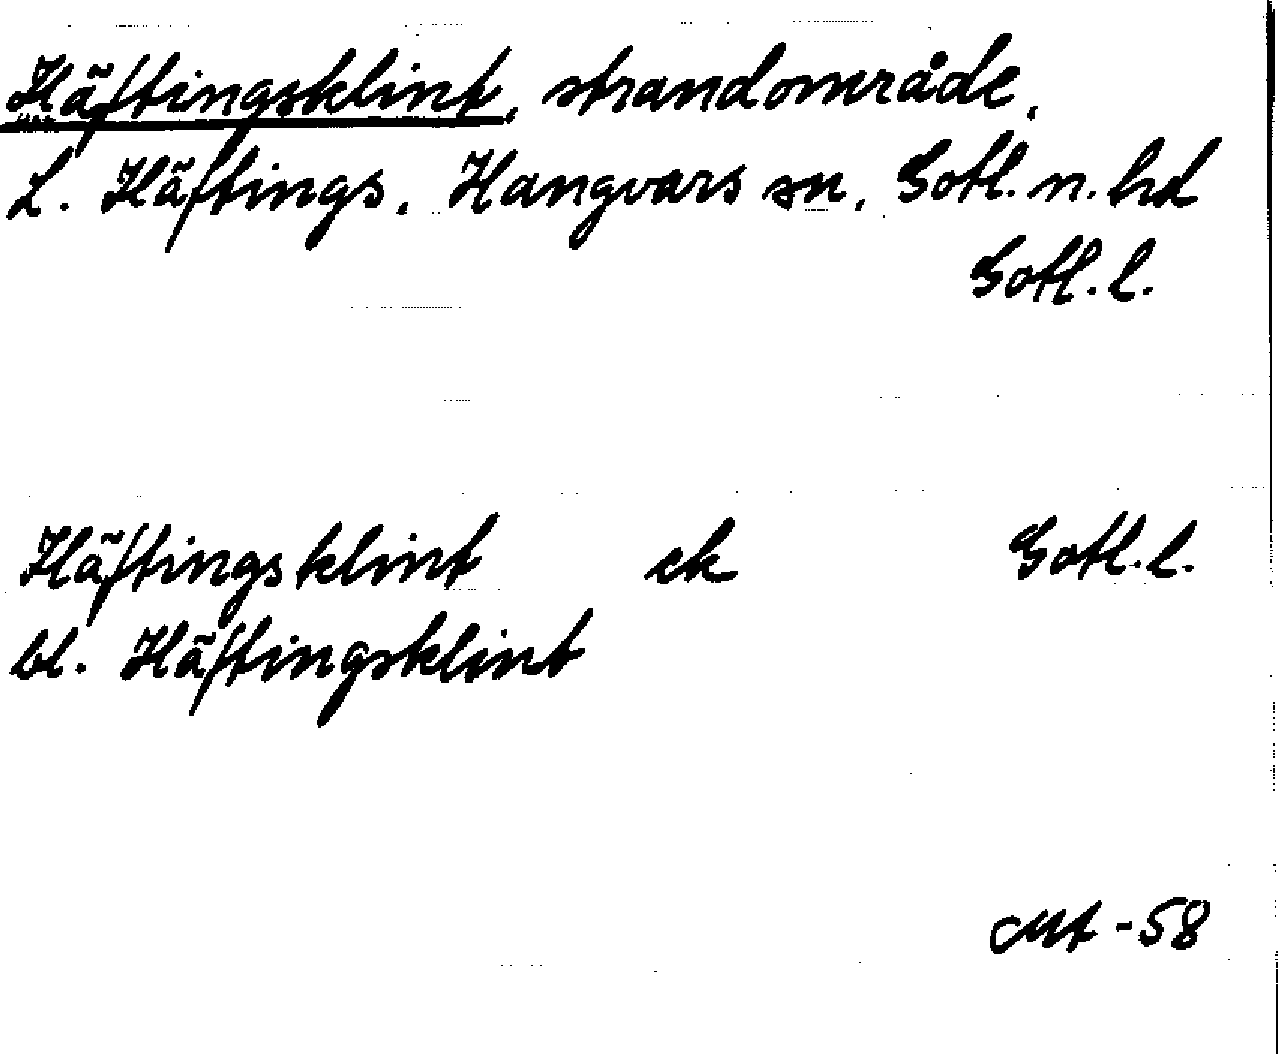 Häftingsklint, strandområde,
L. Häftings, Hangvars sn, Gotl. n. hd
Gotl. l.
Häftingsklint ek Gotl. l.
bl. Häftingsklint
Mt -58